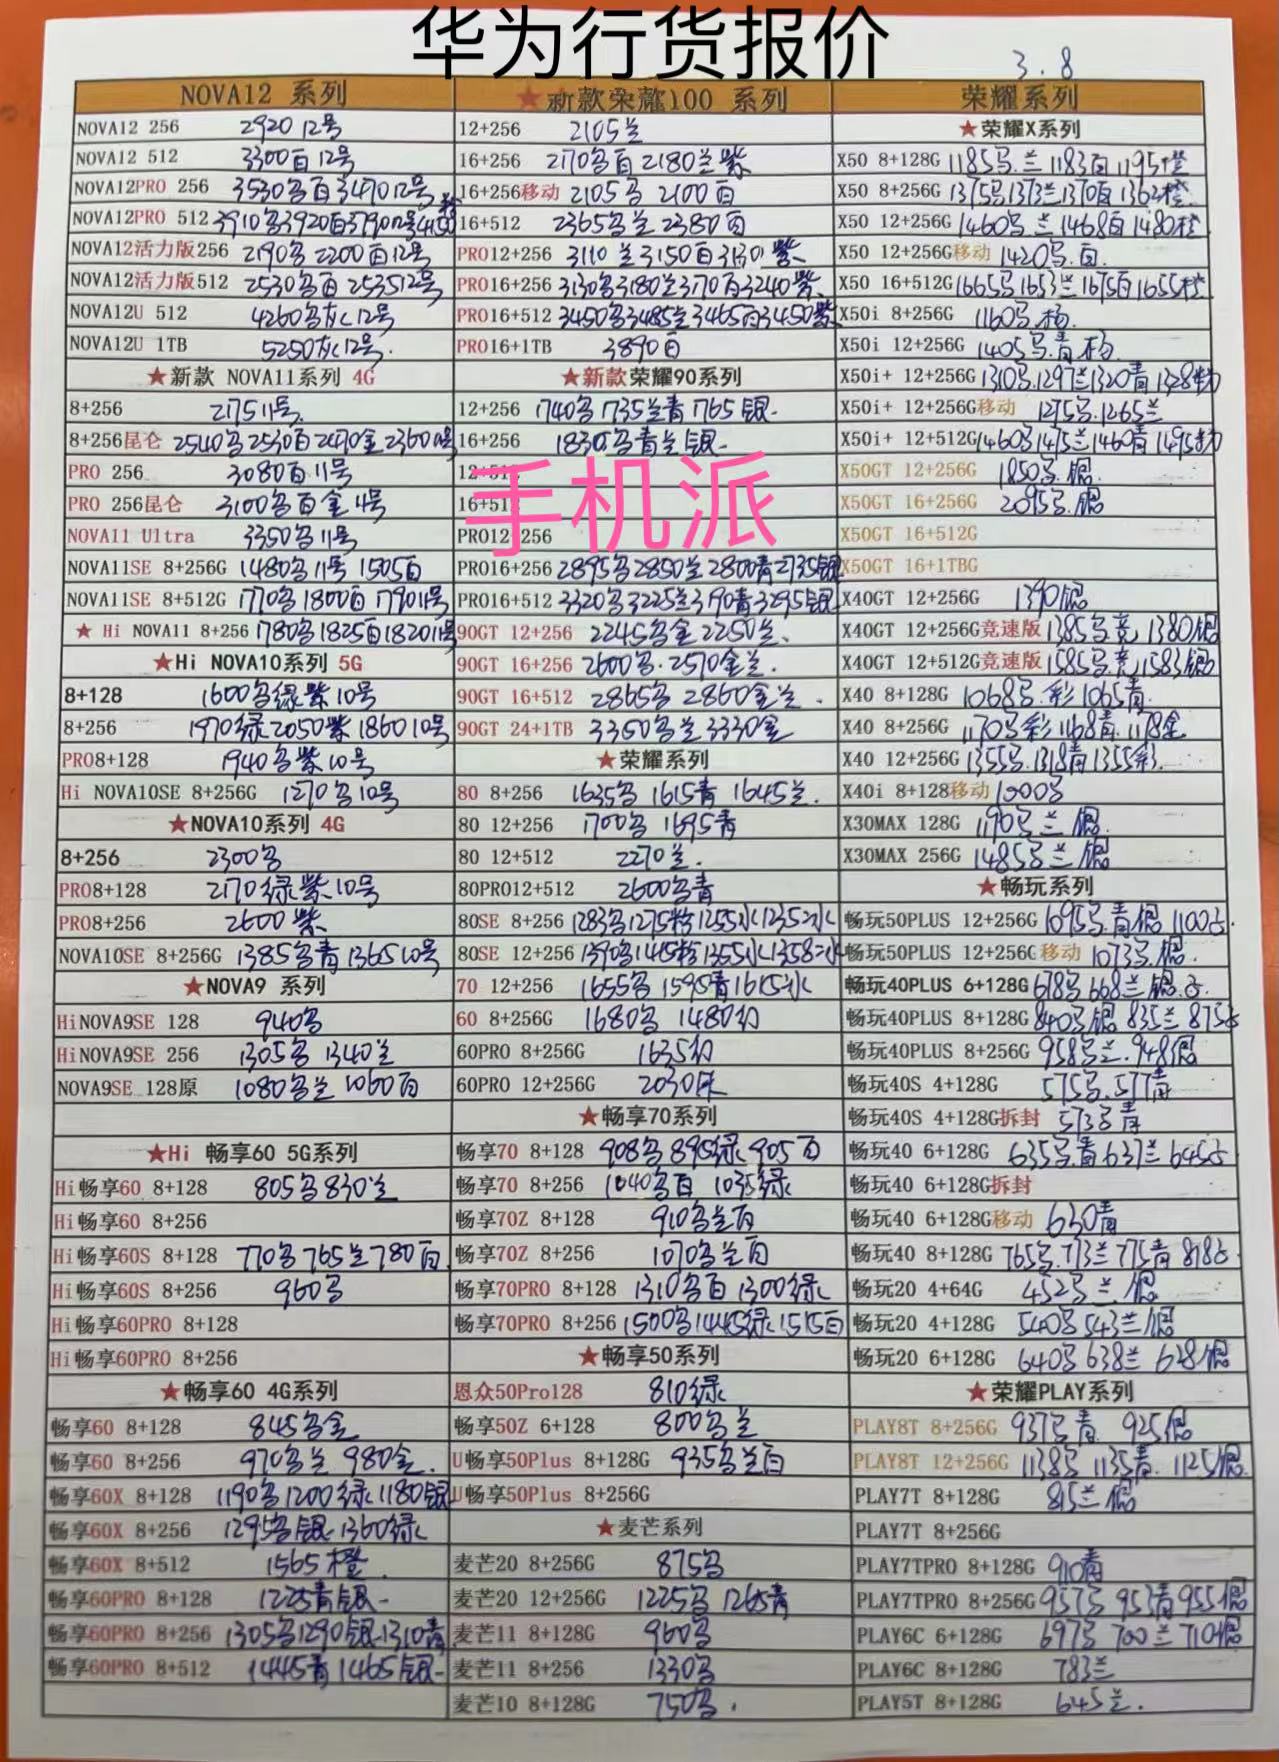 华为行货报价
3.8
NOVA12 系列
NOVA12 256 2920 12号
NOVA12 512 3300百12号
NOVA12PRO 256 3530名百3470 12号
NOVA12PRO 512 3910名3920百3790 12号
NOVA12活力版256 2190名 2200百12号
NOVA12活力版512 2530名百 2535 12号
NOVA12U 512 4260名灰12号
NOVA12U 1TB 5250灰12号.
★新款 NOVA11系列 4G
8+256 2175 11号
8+256昆仑 2540名2530百2490金2360 11号
PRO 256 3080百11号
PRO 256昆仑 3100名百金 4号
NOVA11 Ultra 3350名11号
NOVA11SE 8+256G 1480名11号 1505百
NOVA11SE 8+512G 1770名1800百1790 11号
★ Hi NOVA11 8+256 1780名1825百1820 11号
★Hi NOVA10系列 5G
8+128 1600名绿紫10号
8+256 1970绿2050紫1860 10号
PRO8+128 1940名紫10号
Hi NOVA10SE 8+256G 1270名10号
★NOVA10系列 4G
8+256 2300名
PRO8+128 2170绿紫10号
PRO8+256 2600紫
NOVA10SE 8+256G 1385名青1365 10号
★NOVA9 系列
HiNOVA9SE 128 940名
HiNOVA9SE 256 1305名 1340兰
NOVA9SE 128原 1080名兰 1060百
★Hi 畅享60 5G系列
Hi畅享60 8+128 805名830兰
Hi畅享60 8+256
Hi畅享60S 8+128 770名765兰780百
Hi畅享60S 8+256 960名
Hi畅享60PRO 8+128
Hi畅享60PRO 8+256
★畅享60 4G系列
畅享60 8+128 845名金
畅享60 8+256 970名兰 980金.
畅享60X 8+128 1190名1200绿1180银
畅享60X 8+256 1295名银 1360绿
畅享60X 8+512 1565橙.
畅享60PRO 8+128 1225青银
畅享60PRO 8+256 1305名1290银1310青
畅享60PRO 8+512 1445青1465银
★新款荣耀100 系列
12+256 2105兰
16+256 2170名百2180兰紫
16+256移动 2105名 2100百
16+512 2365名兰2380百
PRO12+256 3110兰3150百3130紫
PRO16+256 3130名3180兰3170百3240紫
PRO16+512 3450名3485兰3465百3450紫
PRO16+1TB 3890百
★新款荣耀90系列
12+256 1740名1735兰青1765银
16+256 1830名青兰银
手机派
12+512
16+512
PRO12+256
PRO16+256 2895名2850兰2800青2735银
PRO16+512 3320名3225兰3190青3295银
90GT 12+256 2245名金2250兰
90GT 16+256 2600名.2570金兰.
90GT 16+512 2865名 2860金兰.
90GT 24+1TB 3350名兰3330金
★荣耀系列
80 8+256 1635名1615青1645兰.
80 12+256 1700名 1695青
80 12+512 2270兰.
80PRO12+512 2600名青
80SE 8+256 1283名1275粉1255水
80SE 12+256 1390名1445粉1355水
70 12+256 1655名1595青1615冰
60 8+256G 1680名 1480幻
60PRO 8+256G 1635幻
60PRO 12+256G 2030
★畅享70系列
畅享70 8+128 908名895绿905百
畅享70 8+256 1040名百 1035绿
畅享70Z 8+128 910名兰百
畅享70Z 8+256 1070名兰百
畅享70PRO 8+128 1310名百1300绿
畅享70PRO 8+256 1500名1445绿1515百
★畅享50系列
恩众50Pro128 810绿
畅享50Z 6+128 800名兰
U畅享50Plus 8+128G 935名兰百
U畅享50Plus 8+256G
★麦芒系列
麦芒20 8+256G 875名
麦芒20 12+256G 1225名1265青
麦芒11 8+128G 960名
麦芒11 8+256 1330名
麦芒10 8+128G 750名.
荣耀系列
★荣耀X系列
X50 8+128G 1185名.兰1183百1195橙
X50 8+256G 1375名1373兰1370百1362橙
X50 12+256G 1460名兰1468百1480橙
X50 12+256G移动 1420名.百.
X50 16+512G 1665名1653兰1675百1655橙
X50i 8+256G 1160名.杨.
X50i 12+256G 1405名.青杨.
X50i+ 12+256G 1310名1297兰1320青1328粉
X50i+ 12+256G移动 1275名.1265兰
X50i+ 12+512G 1460名1475兰1460青1495粉
X50GT 12+256G 1850名.银
X50GT 16+256G 2095名.银
X50GT 16+512G
X50GT 16+1TBG
X40GT 12+256G 1390银
X40GT 12+256G竞速版 1385名竞1380银
X40GT 12+512G竞速版 1585名.竞1583银
X40 8+128G 1068名.彩1065青.
X40 8+256G 1170名彩1168青.1178金
X40 12+256G 1355名.1318青1355彩.
X40i 8+128移动 1000名
X30MAX 128G 1190名兰银
X30MAX 256G 1485名兰银
★畅玩系列
畅玩50PLUS 12+256G 1095名.青银 1100
畅玩50PLUS 12+256G移动 1073名.银.
畅玩40PLUS 6+128G 678名668兰银
畅玩40PLUS 8+128G 840名银835兰875
畅玩40PLUS 8+256G 958名兰.948银
畅玩40S 4+128G 575名.577青
畅玩40S 4+128G拆封 573名青
畅玩40 6+128G 635名.青637兰645
畅玩40 6+128G拆封
畅玩40 6+128G移动 630青
畅玩40 8+128G 765名.773兰775青818
畅玩20 4+64G 452名兰银
畅玩20 4+128G 540名543兰银
畅玩20 6+128G 640名638兰628银
★荣耀PLAY系列
PLAY8T 8+256G 937名青.925银
PLAY8T 12+256G 1138名1135青.1125银
PLAY7T 8+128G 815兰银
PLAY7T 8+256G
PLAY7TPRO 8+128G 910青
PLAY7TPRO 8+256G 957名953青955银
PLAY6C 6+128G 697名700兰710银
PLAY6C 8+128G 783兰
PLAY5T 8+128G 645兰.